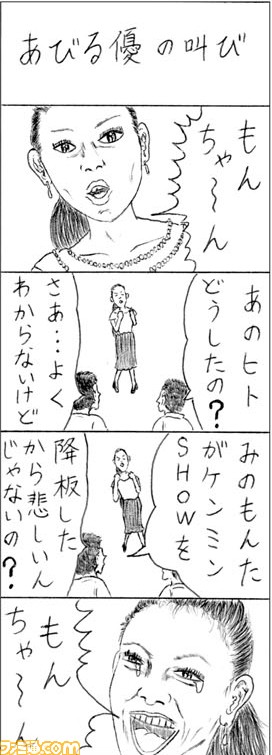 あびる優の叫び
もん
ちゃ～～ん
あのヒト
どうしたの？
さあ…よく
わからないけど
みのもんた
がケンミン
SHOWを
降板した
から悲しいん
じゃないの？
もん
ちゃ～～ん
ファミ通.com